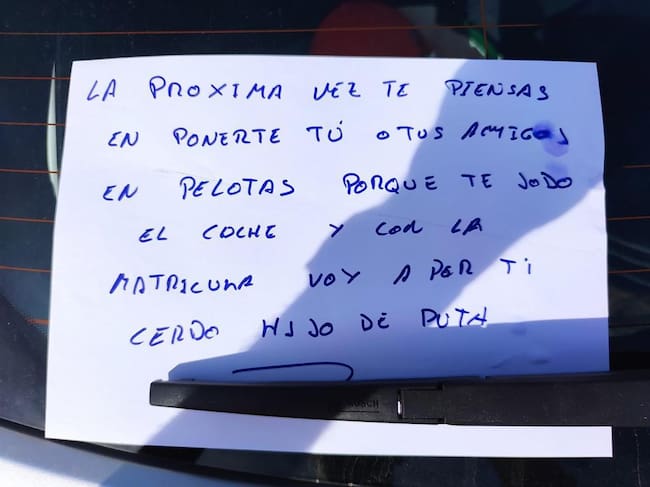 LA PROXIMA VEZ TE PIENSAS
EN PONERTE TÚ O TUS AMIGOS
EN PELOTAS PORQUE TE JODO
EL COCHE Y CON LA
MATRICULA VOY A PER TI
CERDO HIJO DE PUTA
BOSCH